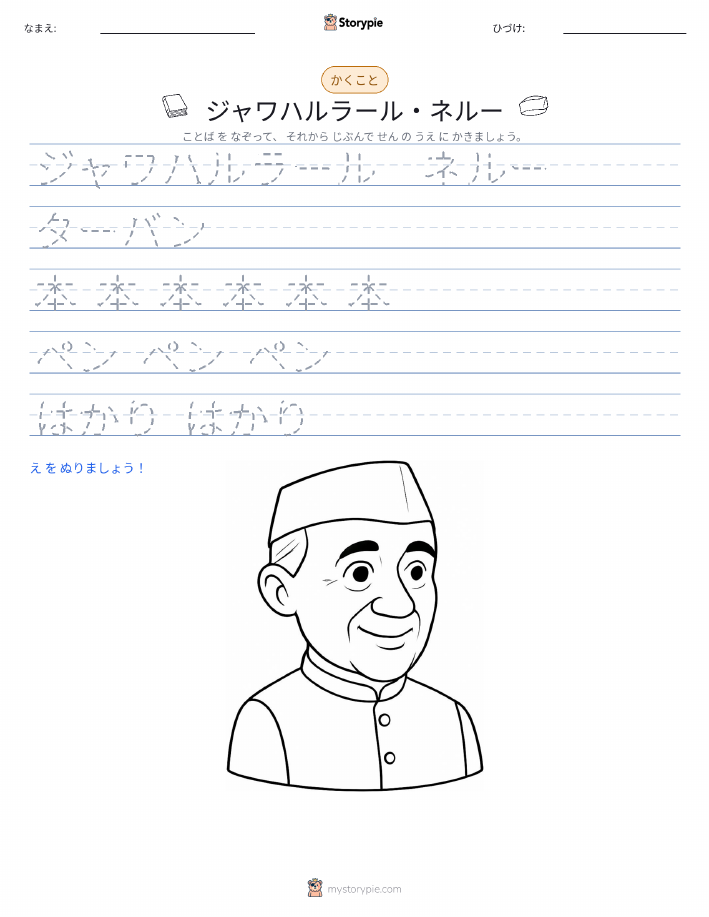 なまえ:
Storypie
ひづけ:
かくこと
ジャワハルラール・ネルー
ことば を なぞって、 それから じぶんで せん の うえ に かきましょう。
ジャワハルラール ネルー
ターバン
本 本 本 本 本 本
ペン ペン ペン
はかり はかり
え を ぬりましょう！
mystorypie.com